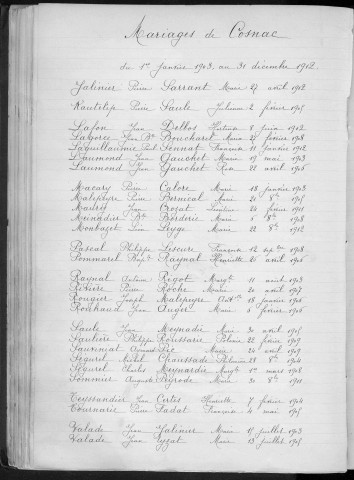 Mariages de Cosnac
du 1er Janvier 1903, au 31 décembre 1912
Jalinier Pierre Sarrant Marie 27 avril 1912
Pierre Saule Julienne 2 février 1905
Lafon Jean Delbos 8 juin 1912
Laporce Jean Bte Bouchard Marie février 1908
Laguillaumie Paul Sennat Françoise 11 janvier 1912
Laumond Jean Gauchet Marie 19 mai 1903
Laumond Jean Gauchet Rose 22 avril 1905
Macary Pierre Calore Marie 18 janvier 1903
Malepeyre Pierre Bernical Marie 20 8bre
Maury Crozat 1911
Meinadier Bte Borderie Marie 5 8bre 1908
Montazet Léon Peyge Marie 22 8bre 1912
Pascal Philippe Lescure Françoise 12 1908
Pommarel Bapte Raynal Henriette 25 avril 1906
Raynal Antoine Rigot Margte 11 août 1903
Rivière Pierre Roche Marie 20 avril 1907
Rougier Joseph Malepeyre 13 janvier 1906
Rouhaud Jean Auger Marie 5 février 1906
Saule Jean Meynadie Marie 30 avril 1905
Sautière Philippe Roussarie 22 février 1909
Saunimat Pic Marie 24 avril 1909
Ségurel Michel Chaussade 28 8bre 1904
Segurel Charles Meynardie Margte 1er mars 1908
Sommier Auguste Peyrode Marie 30 8bre 1911
Teyssandier Jean Certes Henriette 7 février 1904
Tournerie Pierre Ladat Françoise 4 mai 1905
Valade Jean Jalinier Marie 11 juillet 1903
Valade Jean Lyzat Marie 13 juillet 1905